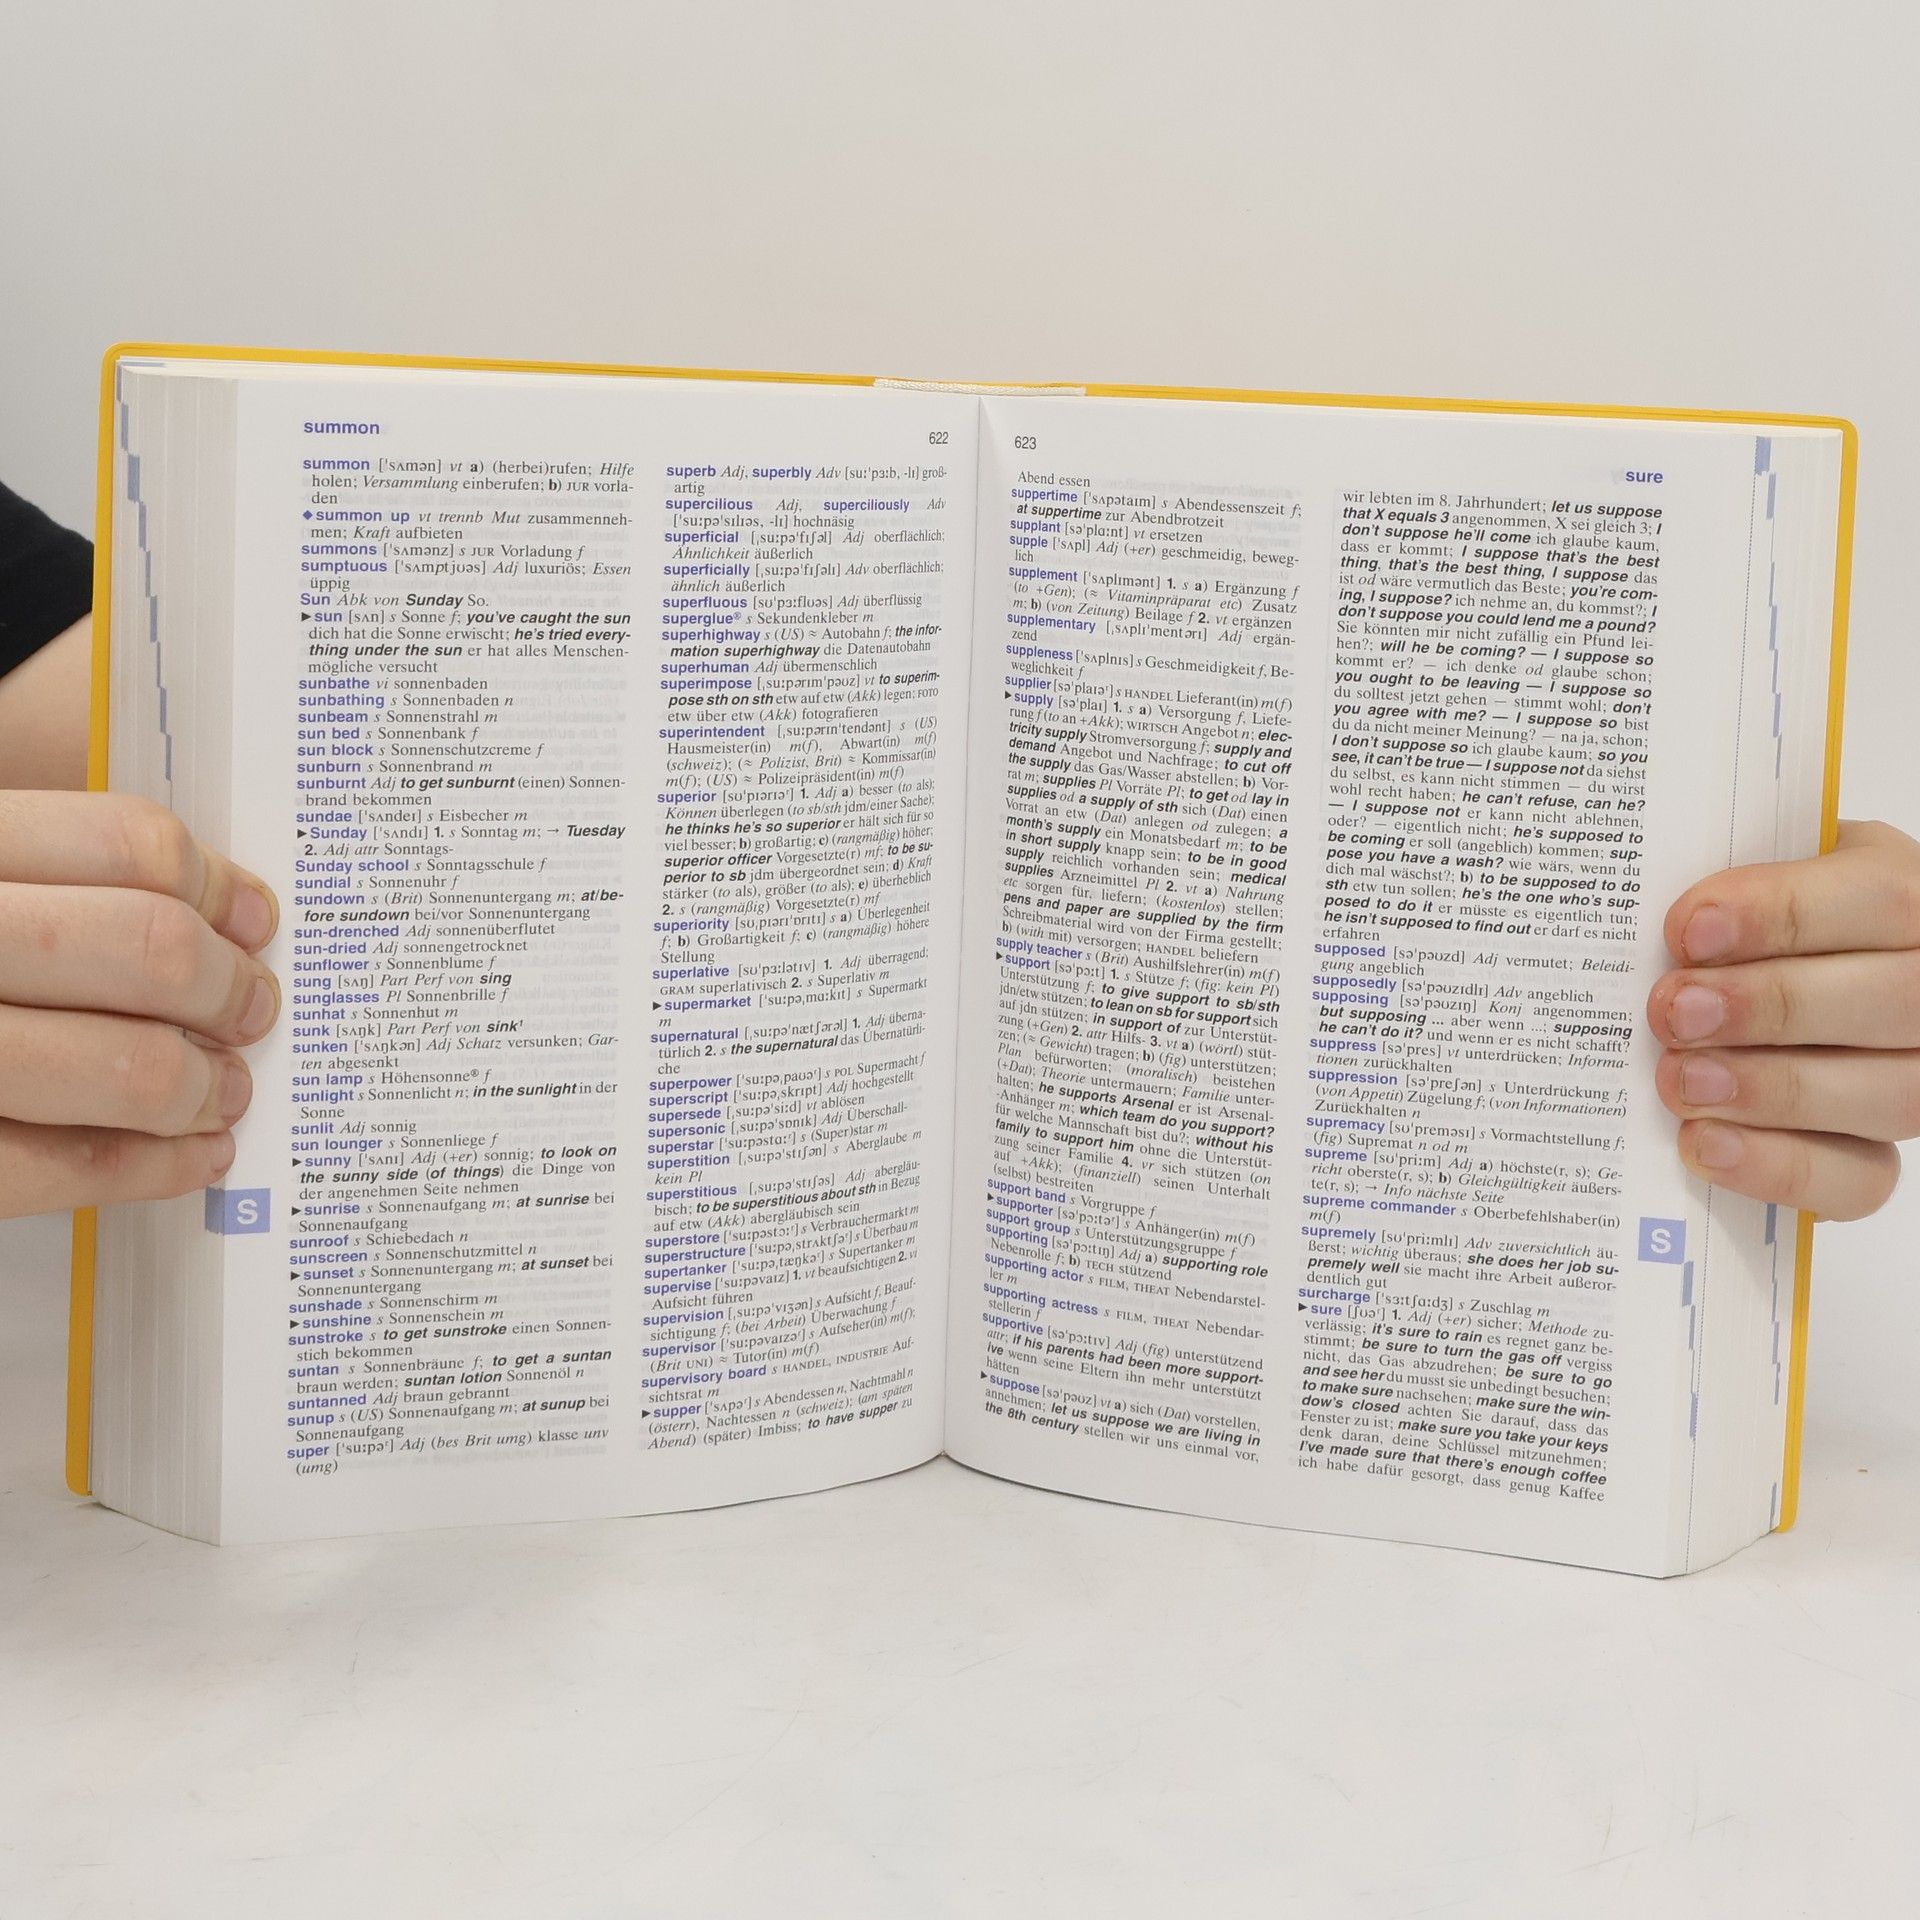 summon
622
summon ['sʌmən] vt a) (herbei)rufen; Hilfe
holen; Versammlung einberufen; b) JUR vorla-
den
◆summon up vt trennb Mut zusammenneh-
men; Kraft aufbieten
summons ['sʌmənz] s JUR Vorladung f
sumptuous ['sʌmptjʊəs] Adj luxuriös; Essen
üppig
Sun Abk von Sunday So.
▶sun [sʌn] s Sonne f; you've caught the sun
dich hat die Sonne erwischt; he's tried every-
thing under the sun er hat alles Menschen-
mögliche versucht
sunbathe vi sonnenbaden
sunbathing s Sonnenbaden n
sunbeam s Sonnenstrahl m
sun bed s Sonnenbank f
sun block s Sonnenschutzcreme f
sunburn s Sonnenbrand m
sunburnt Adj to get sunburnt (einen) Sonnen-
brand bekommen
sundae ['sʌndeɪ] s Eisbecher m
▶Sunday ['sʌndɪ] 1. s Sonntag m; → Tuesday
2. Adj attr Sonntags-
Sunday school s Sonntagsschule f
sundial s Sonnenuhr f
sundown s (Brit) Sonnenuntergang m; at/be-
fore sundown bei/vor Sonnenuntergang
sun-drenched Adj sonnenüberflutet
sun-dried Adj sonnengetrocknet
sunflower s Sonnenblume f
sung [sʌŋ] Part Perf von sing
sunglasses Pl Sonnenbrille f
sunhat s Sonnenhut m
sunk [sʌŋk] Part Perf von sink¹
sunken ['sʌŋkən] Adj Schatz versunken; Gar-
ten abgesenkt
sun lamp s Höhensonne® f
sunlight s Sonnenlicht n; in the sunlight in der
Sonne
sunlit Adj sonnig
sun lounger s Sonnenliege f
▶sunny ['sʌnɪ] Adj (+er) sonnig; to look on
the sunny side (of things) die Dinge von
der angenehmen Seite nehmen
▶sunrise s Sonnenaufgang m; at sunrise bei
Sonnenaufgang
sunroof s Schiebedach n
sunscreen s Sonnenschutzmittel n
▶sunset s Sonnenuntergang m; at sunset bei
Sonnenuntergang
sunshade s Sonnenschirm m
▶sunshine s Sonnenschein m
sunstroke s to get sunstroke einen Sonnen-
stich bekommen
suntan s Sonnenbräune f; to get a suntan
braun werden; suntan lotion Sonnenöl n
suntanned Adj braun gebrannt
sunup s (US) Sonnenaufgang m; at sunup bei
Sonnenaufgang
super ['suːpəʳ] Adj (bes Brit umg) klasse unv
(umg)
S
superb Adj, superbly Adv [suː'pɜːb, -lɪ] groß-
artig
supercilious Adj, superciliously Adv
[ˈsuːpə'sɪlɪəs, -lɪ] hochnäsig
superficial [ˌsuːpə'fɪʃəl] Adj oberflächlich;
Ähnlichkeit äußerlich
superficially [ˌsuːpə'fɪʃəlɪ] Adv oberflächlich;
ähnlich äußerlich
superfluous [sʊ'pɜːflʊəs] Adj überflüssig
superglue® s Sekundenkleber m
superhighway s (US) ≈ Autobahn f; the infor-
mation superhighway die Datenautobahn
superhuman Adj übermenschlich
superimpose [ˌsuːpərɪm'pəʊz] vt to superim-
pose sth on sth etw auf etw (Akk) legen; FOTO
etw über etw (Akk) fotografieren
superintendent [ˌsuːpərɪn'tendənt] s (US)
Hausmeister(in) m(f), Abwart(in) m(f)
(schweiz); (≈ Polizist, Brit) ≈ Kommissar(in)
m(f); (US) ≈ Polizeipräsident(in) m(f)
superior [sʊ'pɪərɪəʳ] 1. Adj a) besser (to als);
Können überlegen (to sb/sth jdm/einer Sache);
he thinks he's so superior er hält sich für so
viel besser; b) großartig; c) (rangmäßig) höher;
superior officer Vorgesetzte(r) mf; to be su-
perior to sb jdm übergeordnet sein; d) Kraft
stärker (to als), größer (to als); e) überheblich
2. s (rangmäßig) Vorgesetzte(r) mf
superiority [sʊˌpɪərɪ'ɒrɪtɪ] s a) Überlegenheit
f; b) Großartigkeit f; c) (rangmäßig) höhere
Stellung
superlative [sʊ'pɜːlətɪv] 1. Adj überragend;
GRAM superlativisch 2. s Superlativ m
▶supermarket ['suːpəˌmɑːkɪt] s Supermarkt
m
supernatural [ˌsuːpə'nætʃərəl] 1. Adj überna-
türlich 2. s the supernatural das Übernatürli-
che
superpower ['suːpəˌpaʊəʳ] s POL Supermacht f
superscript ['suːpəˌskrɪpt] Adj hochgestellt
supersede [ˌsuːpə'siːd] vt ablösen
supersonic [ˌsuːpə'sɒnɪk] Adj Überschall-
superstar ['suːpəstɑːʳ] s (Super)star m
superstition [ˌsuːpə'stɪʃən] s Aberglaube m
kein Pl
superstitious [ˌsuːpə'stɪʃəs] Adj abergläu-
bisch; to be superstitious about sth in Bezug
auf etw (Akk) abergläubisch sein
superstore ['suːpəstɔːʳ] s Verbrauchermarkt m
superstructure ['suːpəˌstrʌktʃəʳ] s Überbau m
supertanker ['suːpəˌtæŋkəʳ] s Supertanker m
supervise ['suːpəvaɪz] 1. vt beaufsichtigen 2. vi
Aufsicht führen
supervision [ˌsuːpə'vɪʒən] s Aufsicht f, Beauf-
sichtigung f; (bei Arbeit) Überwachung f
supervisor ['suːpəvaɪzəʳ] s Aufseher(in) m(f);
(Brit UNI) ≈ Tutor(in) m(f)
supervisory board s HANDEL, INDUSTRIE Auf-
sichtsrat m
▶supper ['sʌpəʳ] s Abendessen n, Nachtmahl n
(österr), Nachtessen n (schweiz); (am späten
Abend) (später) Imbiss; to have supper zu
623
sure
Abend essen
suppertime ['sʌpətaɪm] s Abendessenszeit f;
at suppertime zur Abendbrotzeit
supplant [sə'plɑːnt] vt ersetzen
supple ['sʌpl] Adj (+er) geschmeidig, beweg-
lich
supplement ['sʌplɪmənt] 1. s a) Ergänzung f
(to +Gen); (≈ Vitaminpräparat etc) Zusatz
m; b) (von Zeitung) Beilage f 2. vt ergänzen
supplementary [ˌsʌplɪ'mentərɪ] Adj ergän-
zend
suppleness ['sʌplnɪs] s Geschmeidigkeit f, Be-
weglichkeit f
supplier [sə'plaɪəʳ] s HANDEL Lieferant(in) m(f)
▶supply [sə'plaɪ] 1. s a) Versorgung f, Liefe-
rung f (to an +Akk); WIRTSCH Angebot n; elec-
tricity supply Stromversorgung f; supply and
demand Angebot und Nachfrage; to cut off
the supply das Gas/Wasser abstellen; b) Vor-
rat m; supplies Pl Vorräte Pl; to get od lay in
supplies od a supply of sth sich (Dat) einen
Vorrat an etw (Dat) anlegen od zulegen; a
month's supply ein Monatsbedarf m; to be
in short supply knapp sein; to be in good
supply reichlich vorhanden sein; medical
supplies Arzneimittel Pl 2. vt a) Nahrung
etc sorgen für, liefern; (kostenlos) stellen;
pens and paper are supplied by the firm
Schreibmaterial wird von der Firma gestellt;
b) (with mit) versorgen; HANDEL beliefern
supply teacher s (Brit) Aushilfslehrer(in) m(f)
▶support [sə'pɔːt] 1. s Stütze f; (fig: kein Pl)
Unterstützung f; to give support to sb/sth
jdn/etw stützen; to lean on sb for support sich
auf jdn stützen; in support of zur Unterstüt-
zung (+Gen) 2. attr Hilfs- 3. vt a) (wörtl) stüt-
zen; (≈ Gewicht) tragen; b) (fig) unterstützen;
Plan befürworten; (moralisch) beistehen
(+Dat); Theorie untermauern; Familie unter-
halten; he supports Arsenal er ist Arsenal-
-Anhänger m; which team do you support?
für welche Mannschaft bist du?; without his
family to support him ohne die Unterstüt-
zung seiner Familie 4. vr sich stützen (on
auf +Akk); (finanziell) seinen Unterhalt
(selbst) bestreiten
support band s Vorgruppe f
▶supporter [sə'pɔːtəʳ] s Anhänger(in) m(f)
support group s Unterstützungsgruppe f
supporting [sə'pɔːtɪŋ] Adj a) supporting role
Nebenrolle f; b) TECH stützend
supporting actor s FILM, THEAT Nebendarstel-
ler m
supporting actress s FILM, THEAT Nebendar-
stellerin f
supportive [sə'pɔːtɪv] Adj (fig) unterstützend
attr; if his parents had been more support-
ive wenn seine Eltern ihn mehr unterstützt
hätten
▶suppose [sə'pəʊz] vt a) sich (Dat) vorstellen,
annehmen; let us suppose we are living in
the 8th century stellen wir uns einmal vor,
wir lebten im 8. Jahrhundert; let us suppose
that X equals 3 angenommen, X sei gleich 3; I
don't suppose he'll come ich glaube kaum,
dass er kommt; I suppose that's the best
thing, that's the best thing, I suppose das
ist od wäre vermutlich das Beste; you're com-
ing, I suppose? ich nehme an, du kommst?; I
don't suppose you could lend me a pound?
Sie könnten mir nicht zufällig ein Pfund lei-
hen?; will he be coming? — I suppose so
kommt er? — ich denke od glaube schon;
you ought to be leaving — I suppose so
du solltest jetzt gehen — stimmt wohl; don't
you agree with me? — I suppose so bist
du da nicht meiner Meinung? — na ja, schon;
I don't suppose so ich glaube kaum; so you
see, it can't be true — I suppose not da siehst
du selbst, es kann nicht stimmen — du wirst
wohl recht haben; he can't refuse, can he?
— I suppose not er kann nicht ablehnen,
oder? — eigentlich nicht; he's supposed to
be coming er soll (angeblich) kommen; sup-
pose you have a wash? wie wärs, wenn du
dich mal wäschst?; b) to be supposed to do
sth etw tun sollen; he's the one who's sup-
posed to do it er müsste es eigentlich tun;
he isn't supposed to find out er darf es nicht
erfahren
supposed [sə'pəʊzd] Adj vermutet; Beleidi-
gung angeblich
supposedly [sə'pəʊzɪdlɪ] Adv angeblich
supposing [sə'pəʊzɪŋ] Konj angenommen;
but supposing ... aber wenn ...; supposing
he can't do it? und wenn er es nicht schafft?
suppress [sə'pres] vt unterdrücken; Informa-
tionen zurückhalten
suppression [sə'preʃən] s Unterdrückung f;
(von Appetit) Zügelung f; (von Informationen)
Zurückhalten n
supremacy [sʊ'preməsɪ] s Vormachtstellung f;
(fig) Supremat n od m
supreme [sʊ'priːm] Adj a) höchste(r, s); Ge-
richt oberste(r, s); b) Gleichgültigkeit äußers-
te(r, s); → Info nächste Seite
supreme commander s Oberbefehlshaber(in)
m(f)
supremely [sʊ'priːmlɪ] Adv zuversichtlich äu-
ßerst; wichtig überaus; she does her job su-
premely well sie macht ihre Arbeit außeror-
dentlich gut
surcharge ['sɜːtʃɑːdʒ] s Zuschlag m
▶sure [ʃʊəʳ] 1. Adj (+er) sicher; Methode zu-
verlässig; it's sure to rain es regnet ganz be-
stimmt; be sure to turn the gas off vergiss
nicht, das Gas abzudrehen; be sure to go
and see her du musst sie unbedingt besuchen;
to make sure nachsehen; make sure the win-
dow's closed achten Sie darauf, dass das
Fenster zu ist; make sure you take your keys
denk daran, deine Schlüssel mitzunehmen;
I've made sure that there's enough coffee
ich habe dafür gesorgt, dass genug Kaffee
S